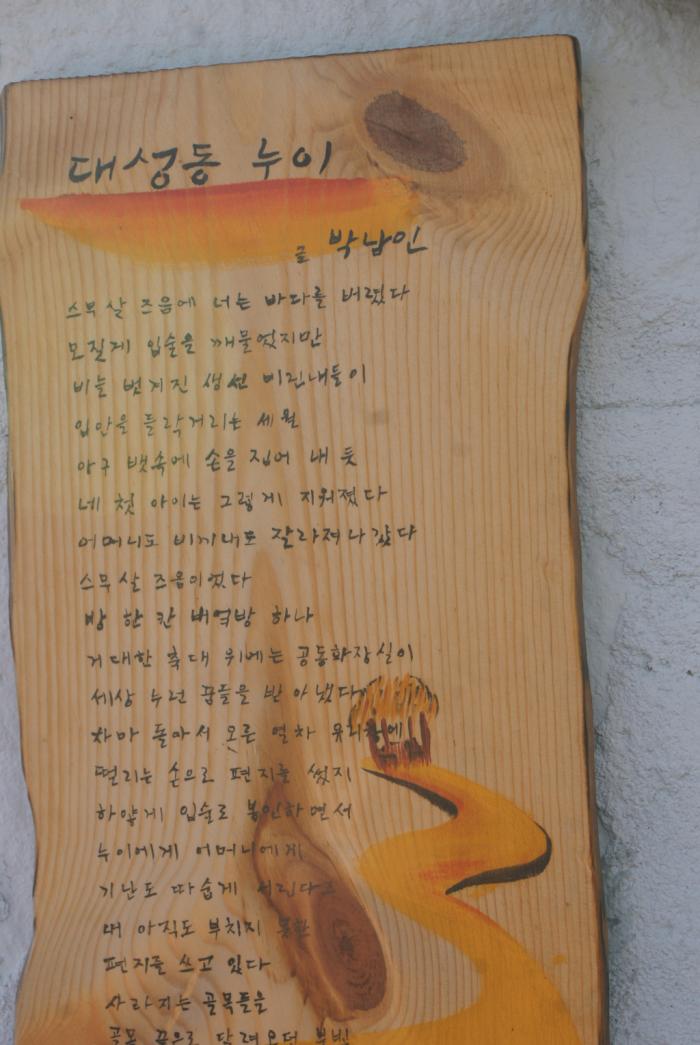 대성동 누이
글 박남인
스무살 즈음에 너는 바다를 버렸다
모질게 입술을 깨물었지만
비늘 벗겨진 생선 비린내들이
입안을 들락거리는 세월
아구 뱃속에 손을 집어 내 듯
네 첫 아이는 그렇게 지워졌다
어머니도 비끼내도 잘라져나갔다
스무살 즈음이었다
방 한 칸 벼억방 하나
거대한 축대 위에는 공동화장실이
세상 누런 꿈들을 받아냈다
차마 돌아서 오른 열차 유리창에
떨리는 손으로 편지를 썼지
하얗게 입술로 봉인하면서
누이에게 어머니에게
가난도 따숩게
내 아직도 부치지 못한
편지를 쓰고 있다
사라지는 골목들을
골목 끝으로 달려오던